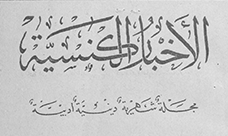 الأخبار الكنسية
مجلة شهرية دينية أدبية